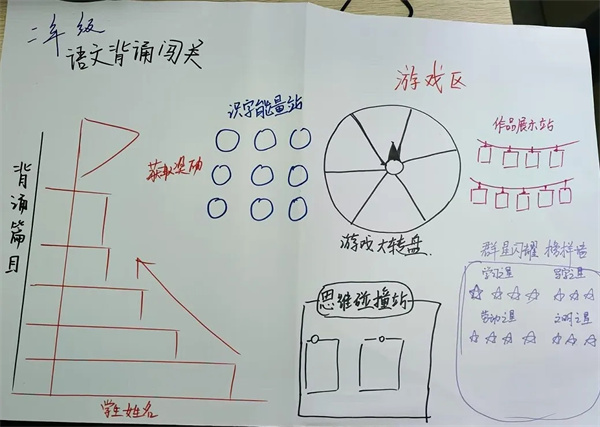 二年级
语文背诵闯关
游戏区
识字能量站
作品展示站
背诵篇目
获取奖励
游戏大转盘
群星闪耀 榜样墙
学习之星
劳动之星 文明之星
思维碰撞站
学生姓名